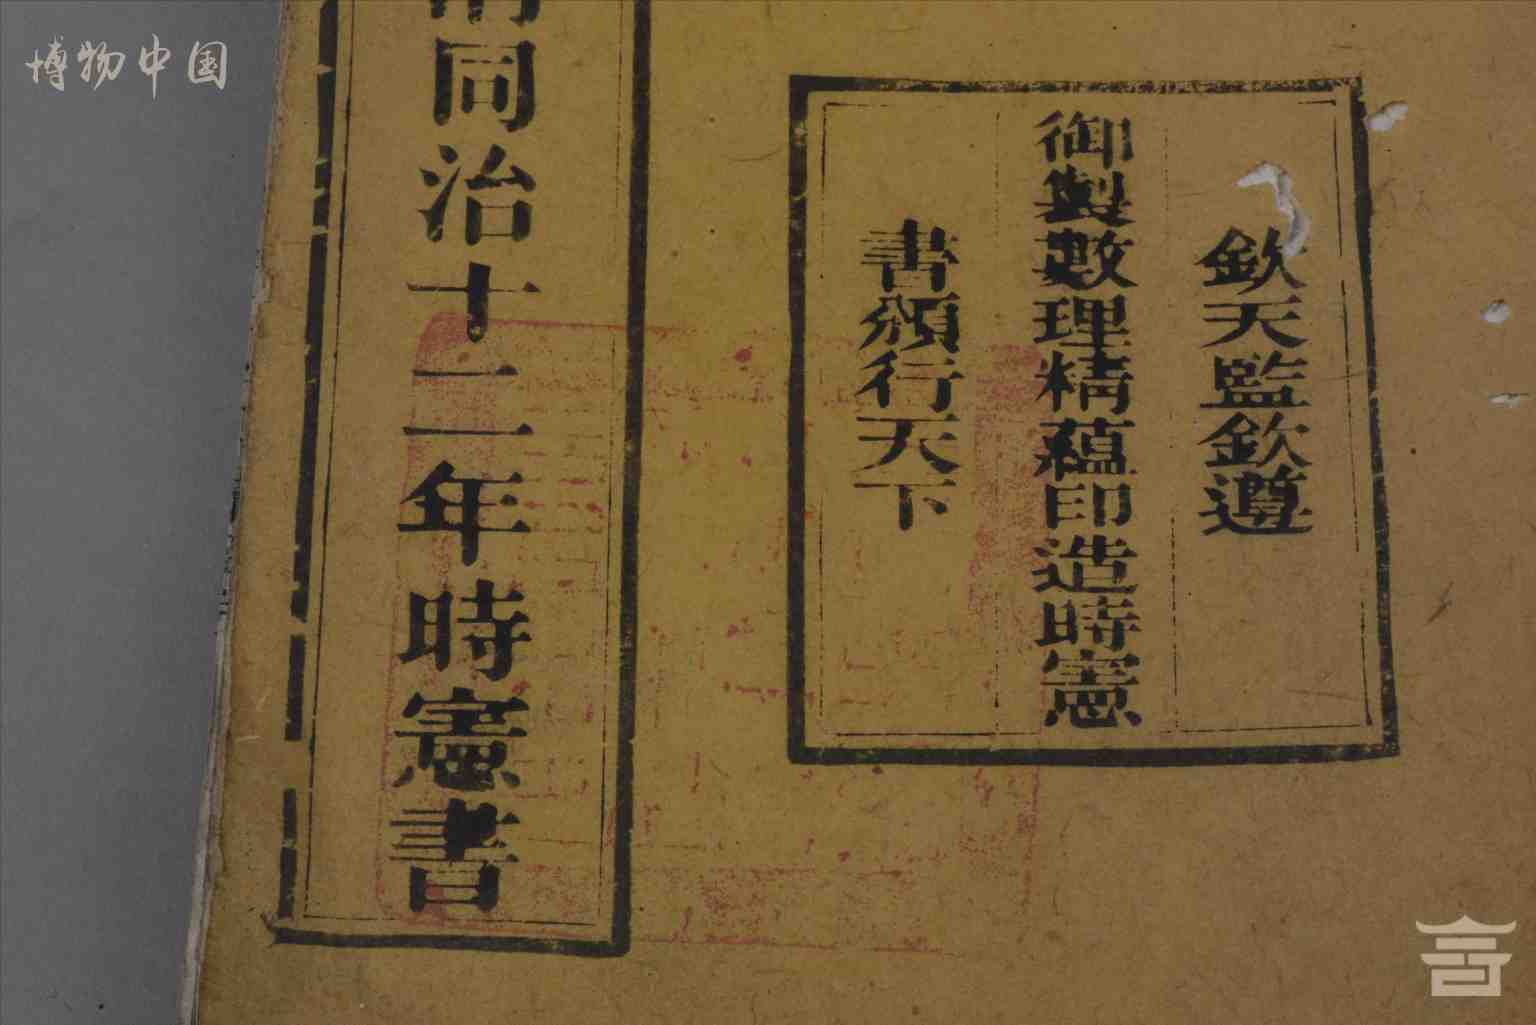 博物中国
欽天監欽遵
御製數理精蘊印造時憲
書頒行天下
清同治十二年時憲書